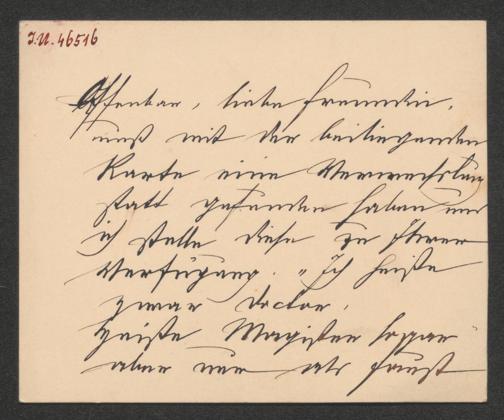 I.N. 46516
Offenbar, liebe Freundin,
muß mit der beiliegenden
Karte eine Verwechslung
statt gefunden haben und
ich stelle diese zu Ihrer
Verfügung. „Ich heiße
zwar Doctor,
heiße Magister sogar"
aber nur als Faust